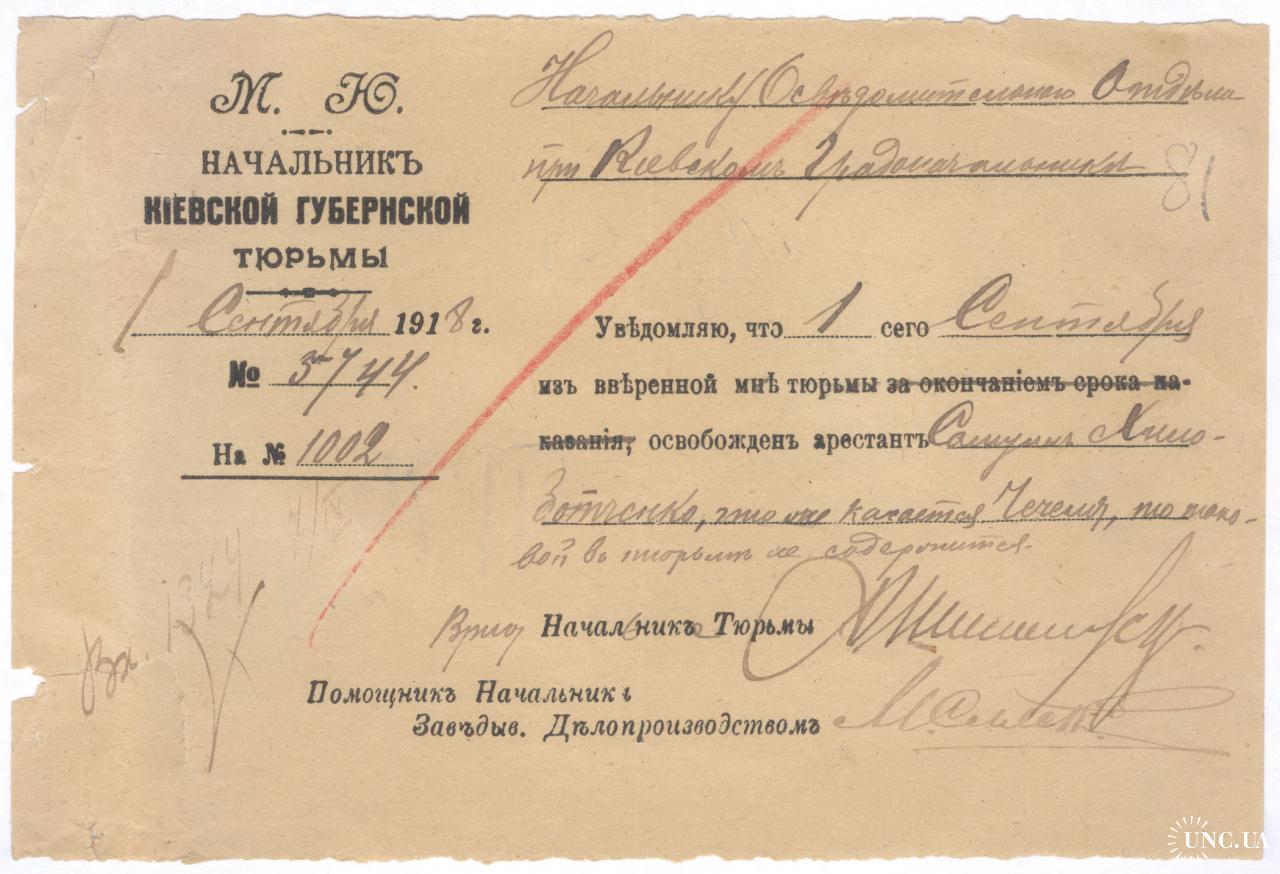 М. Ю.
НАЧАЛЬНИКЪ
КІЕВСКОЙ ГУБЕРНСКОЙ
ТЮРЬМЫ
1 Сентября 1918 г.
№ 5744.
На № 1002
Начальнику Освѣдомительнаго Отдѣла
при Кіевскомъ Градоначальникѣ
81
Увѣдомляю, что 1 сего Сентября
изъ ввѣренной мнѣ тюрьмы за окончаніемъ срока на-
казанія, освобожденъ арестантъ Самуилъ Хило-
что же касается Чечеля, то тако-
вой въ тюрьмѣ не содержится.
Врид Начальникъ Тюрьмы
Помощникъ Начальника
Завѣдыв. Дѣлопроизводствомъ
Вх. 1344
UNC.UA